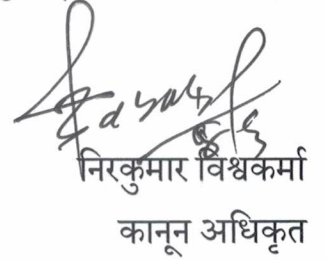 निरकुमार विश्वकर्मा
कानून अधिकृत